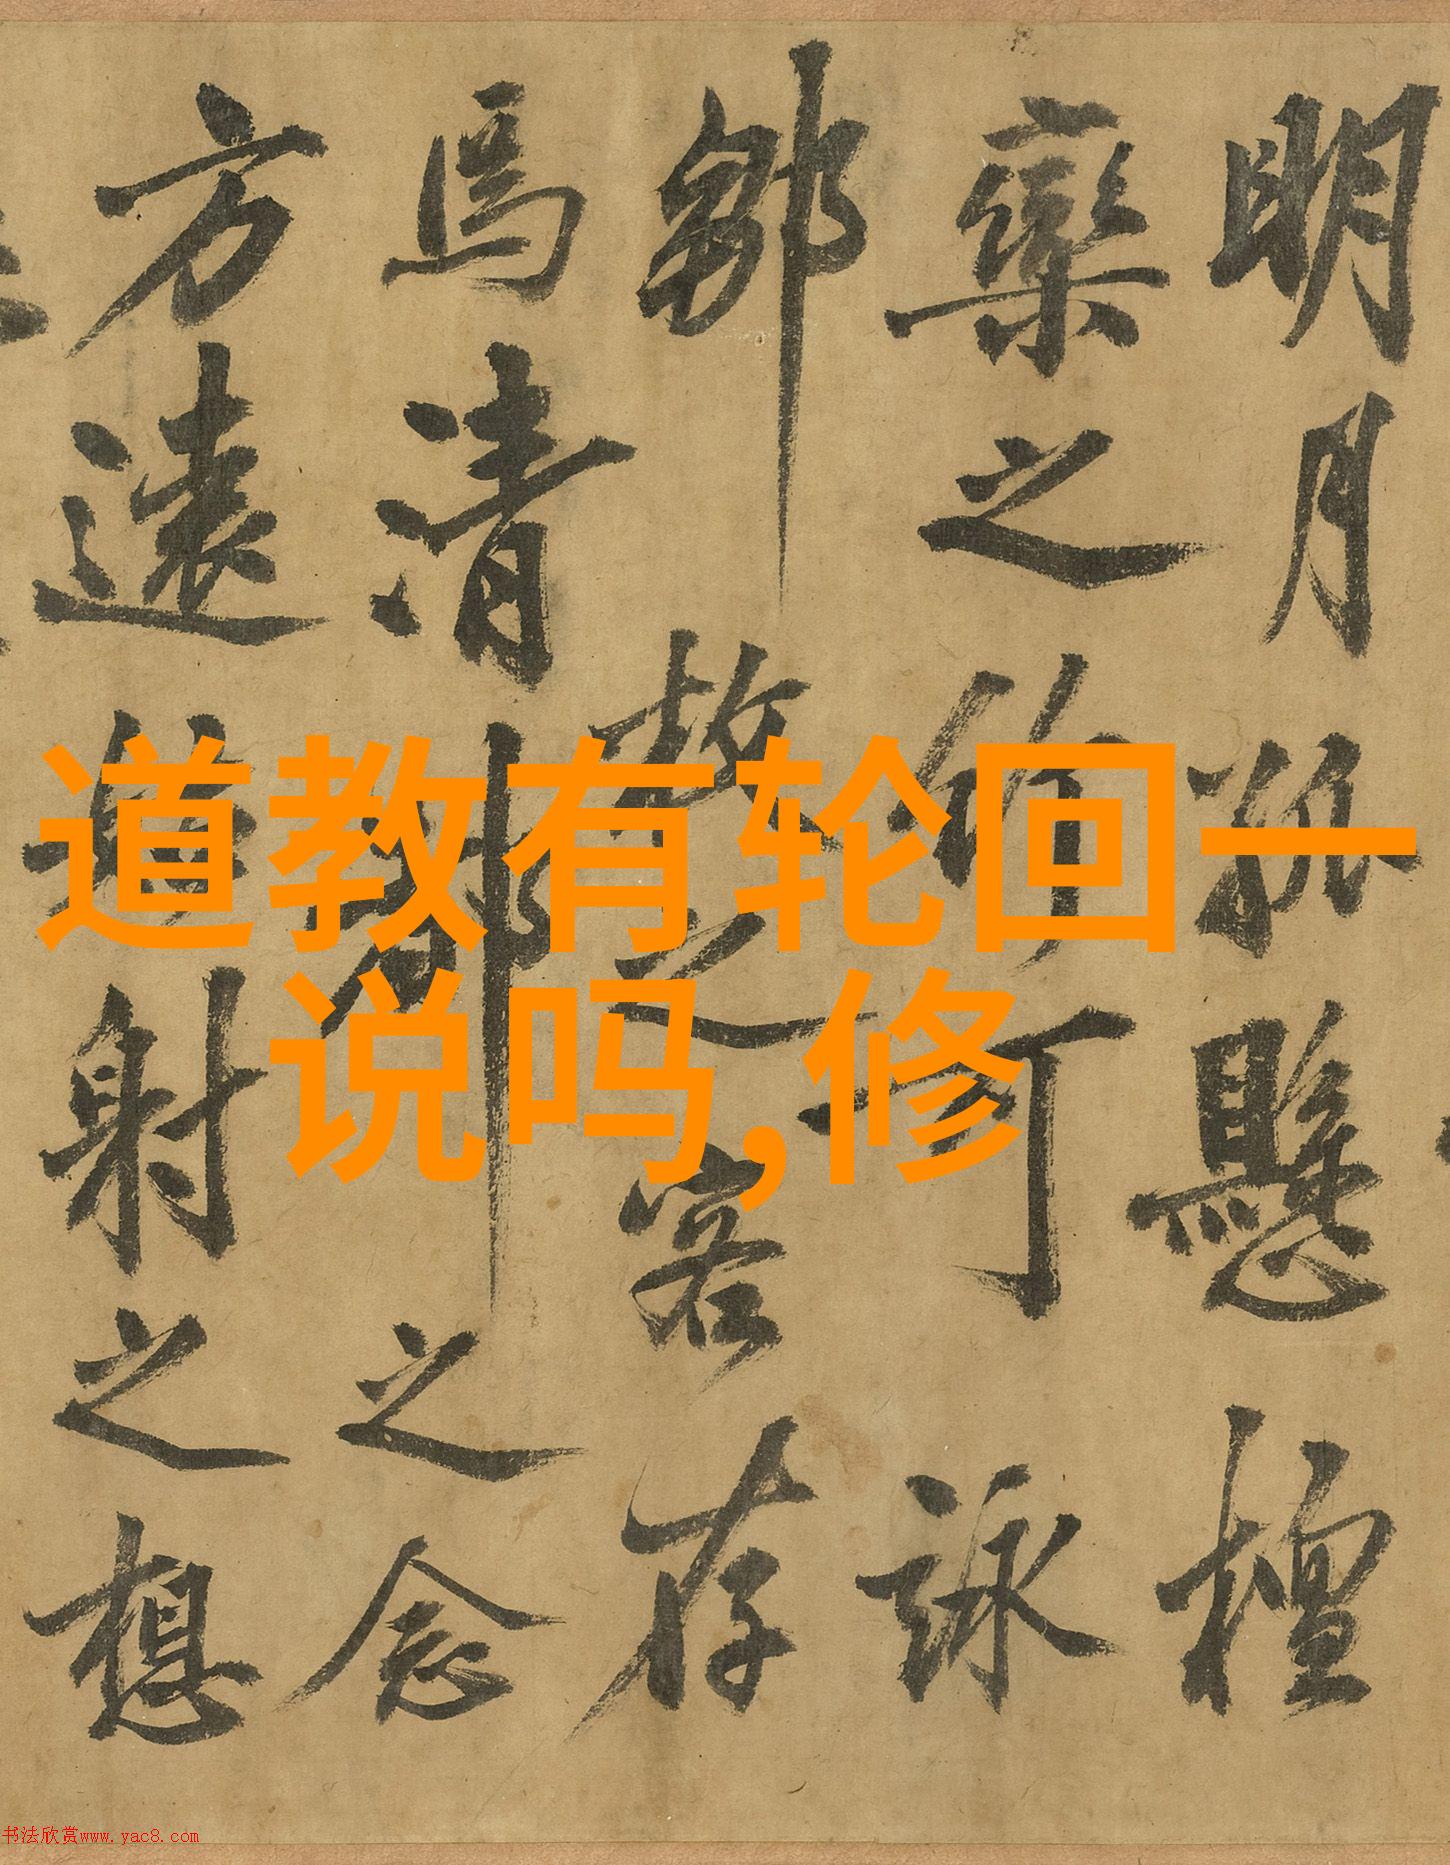 道教有轮回一
说吗,修
明月孤懸檀
欒之竹可詠
鄒
枚之客存
馬清
之念
方遠
射之想
书法欣赏www.yac8.com